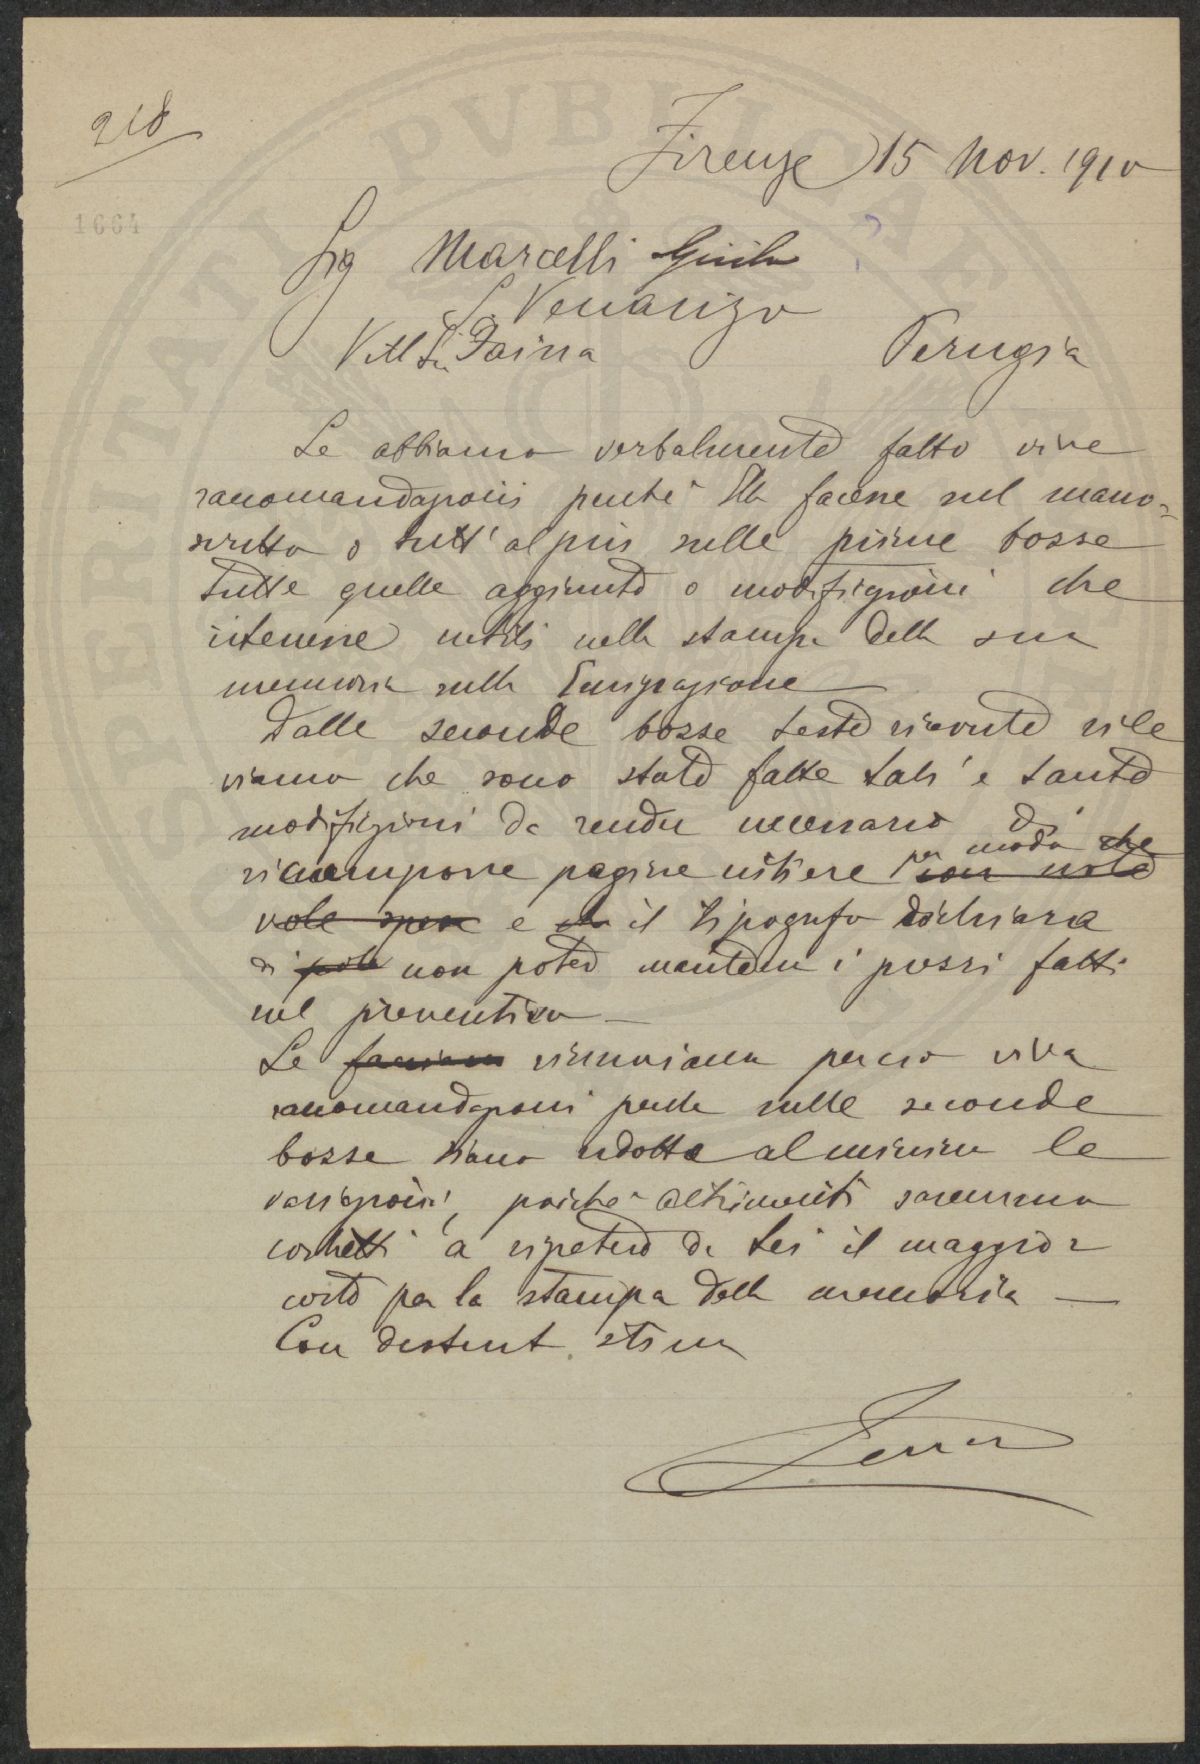 218
Firenze 15 Nov. 1910
1664
Sig Marcelli Giulio
S. Venanzo
Villa Faina Perugia
Le abbiamo verbalmente fatto vive
raccomandazioni perché Ella facesse nel mano-
scritto o tutt'al più nelle prime bozze
tutte quelle aggiunte o modificazioni che
ritenesse utili nella stampa della sua
memoria sulla Emigrazione
Dalle seconde bozze teste ricevute rile
viamo che sono state fatte tali e tante
modificazioni da rendere necessario di
ricomporre pagine intiere per modo che con note
vole spesa e che il tipografo dichiara
di non poter mantenere i prezzi fatti
nel preventivo
Le facciamo rinnoviamo perciò viva
raccomandazioni perché nelle seconde
bozze siano ridotte al minimo le
variazioni, poiché altrimenti saremmo
costretti a ripetere da Lei il maggior
costo per la stampa della memoria
Con distint. stima